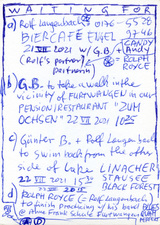 WAITING FOR
a) Rolf Langenbach 0176-5528
BIERCAFÉ ENGEL 3746
21 VII 2021 w/ G.B + CANDY
(Rolf's partner) ANDY
partnerin) = RALPH
ROYCE
b) G.B. to take a walk in the
vicinity of FURTWANGEN in our
PENSION/RESTAURANT "ZUM
OCHSEN" 22 VII 2021 10 25
c) Günter B. + Rolf Langenbach
to swim back from the other
side of Lake LINACHER
22 VII 2021 STAUSEE
BLACK FOREST
d) ROLPH ROYCE (= Rolf Langenbach)
to finish practicing w/ his band
@ Anne Frank Schule Furtwangen